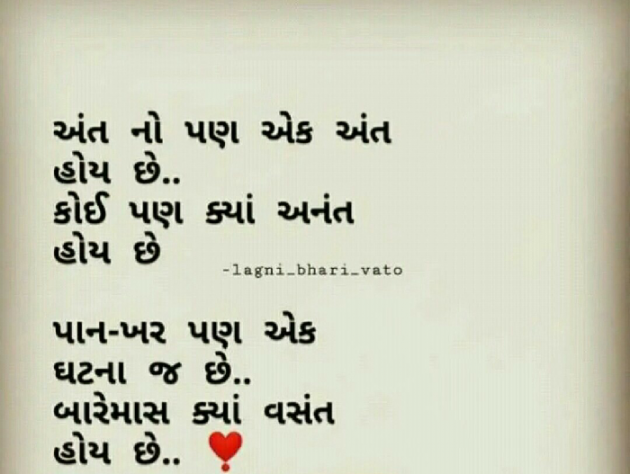 અંત નો પણ એક અંત
હોય છે..
કોઈ પણ ક્યાં અનંત
હોય છે
-lagni_bhari_vato
પાન-ખર પણ એક
ઘટના જ છે..
બારેમાસ ક્યાં વસંત
હોય છે.. ❣